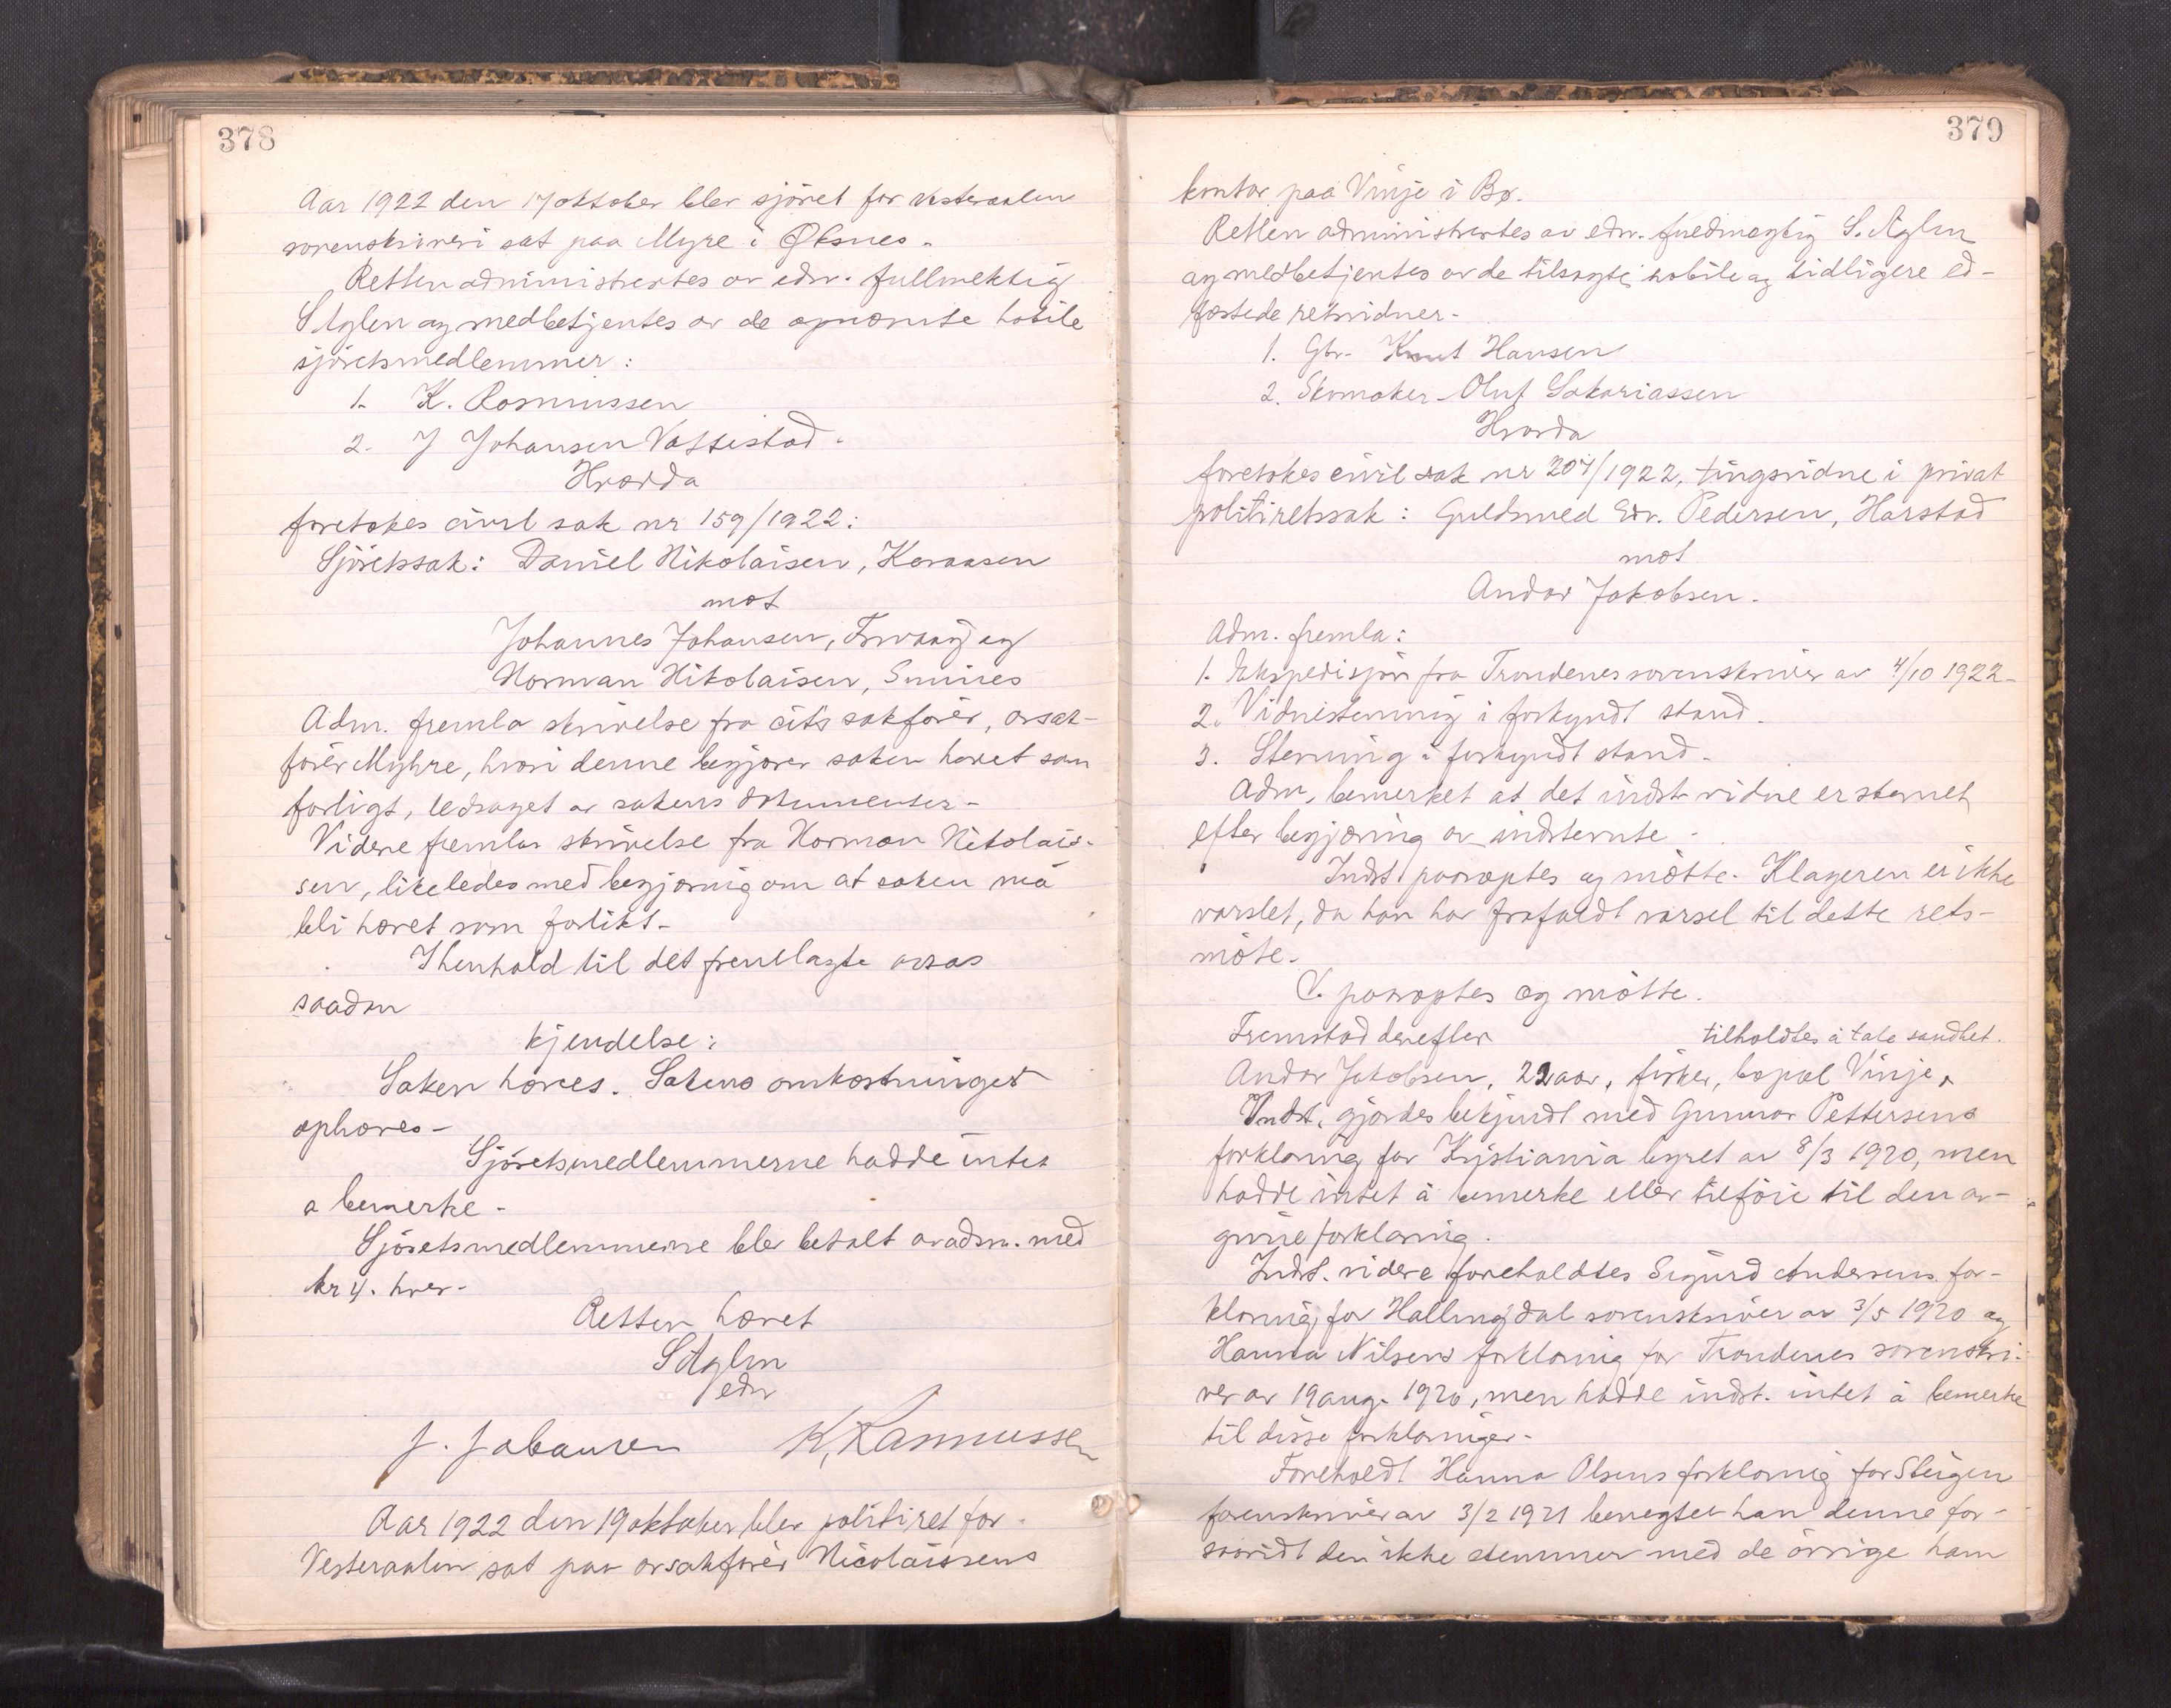 378
Aar 1922 den 17 oktober blev sjöret for Vesteraalen
sorenskriveri sat paa Myre i Øksnes.
Retten administrertes av edsv. fullmektig
S Aglen og medbetjentes av de opnævnte habile
sjöretsmedlemmer:
1. K. Rasmussen
2. J Johansen Vottestad.
Hvorda
foretokes civil sak nr 159/1922:
Sjöretssak: Daniel Nikolaisen,
mot
Johannes Johansen, og
Norman Nikolaisen,
Adm. fremla skrivelse fra cits sakförer, orsak-
förer Myhre, hvori denne begjærer saken hævet som
forligt, ledsaget av sakens dokumenter.
Videre fremla skrivelse fra Norman Nikolais-
sen, likeledes med begjæring om at saken må
bli hævet som forlikt.
I henhold til det fremlagte avsas
saadan
kjendelse:
Saken hæves. Sakens omkostninger
ophæves.
Sjöretsmedlemmerne hadde intet
a bemerke.
Sjöretsmedlemmerne blev betalt av adm. med
kr 4. hver.
Retten hævet
S Aglen
edsv
J. Johansen K. Rasmussen
Aar 1922 den 19 oktober blev politiret for
Vesteraalen sat paa orsakförer Nicolaissens
379
kontor paa Vinje i Bø.
Retten administrertes av edsv. fuldmægtig S. Aglen
og medbetjentes av de tilsagte, habile og tidligere ed-
fæstede retsvidner.
1. Gbr. Knut Hansen
2. Skomaker Oluf Sakariassen
Hvorda
foretokes civil sak nr 207/1922, tingsvidne i privat
politiretssak: Guldsmed Edv. Pedersen, Harstad
mot
Andor Jakobsen.
Adm. fremla:
1. Ekspedisjon fra Trondenes sorenskriver av 4/10 1922.
2. Vidnestevning i forkyndt stand.
3. Stevning i forkyndt stand.
Adm. bemerket at det indst. vidne er stevnet
efter begjæring av indstevnte.
Indst. paaroptes og mötte. Klageren er ikke
varslet, da han har frafaldt varsel til dette rets-
möte.
V. paaroptes og mötte.
Fremstod derefter tilholdtes å tale sandhet.
Andor Jakobsen, 22 aar, fisker, bopæl Vinje.
Indst. gjordes bekjendt med Gunnar Pettersens
forklaring for Kristiania byret av 8/3 1920, men
hadde intet å bemerke eller tilföie til den av-
givne forklaring.
Indst. videre foreholdtes Sigurd Andersens for-
klaring for Hallingdal sorenskriver av 3/5 1920 og
Hanna Nilsens forklaring for Trondenes sorenskri-
ver av 19 aug. 1920, men hadde indst. intet å bemerke
til disse forklaringer.
Foreholdt Hanna Olsens forklaring for Steigen
sorenskriver av 3/2 1921 benegter han denne for-
saavidt den ikke stemmer med de övrige ham